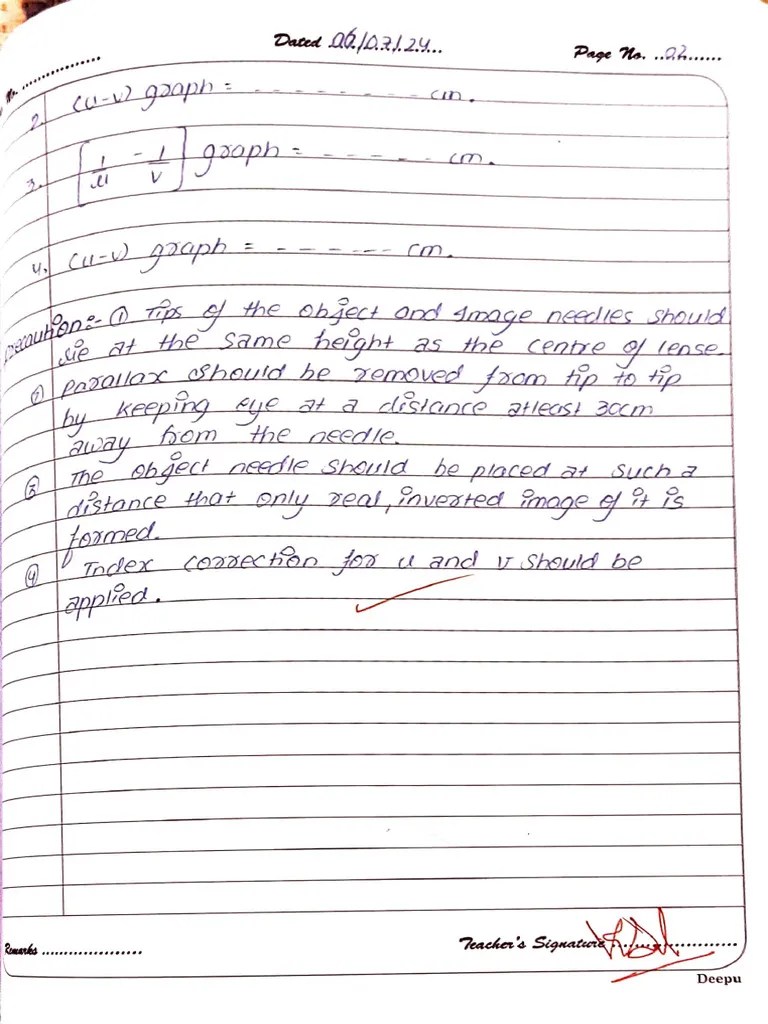 No. ..................
Dated 06/07/24...
Page No. ..02......
2. (u-v) graph = - - - - - - - - cm.
3. [1/u - 1/v] graph = - - - - - cm.
4. (u-v) graph = - - - - - - cm.
precaution:- ① Tips of the object and Image needles should
lie at the same height as the centre of lense.
② parallax should be removed from tip to tip
by keeping eye at a distance atleast 30cm
away from the needle.
③ The object needle should be placed at such a
distance that only real, inverted image of it is
formed.
④ Index correction for u and v should be
applied.
Remarks .....................
Teacher's Signature .....................
Deepu